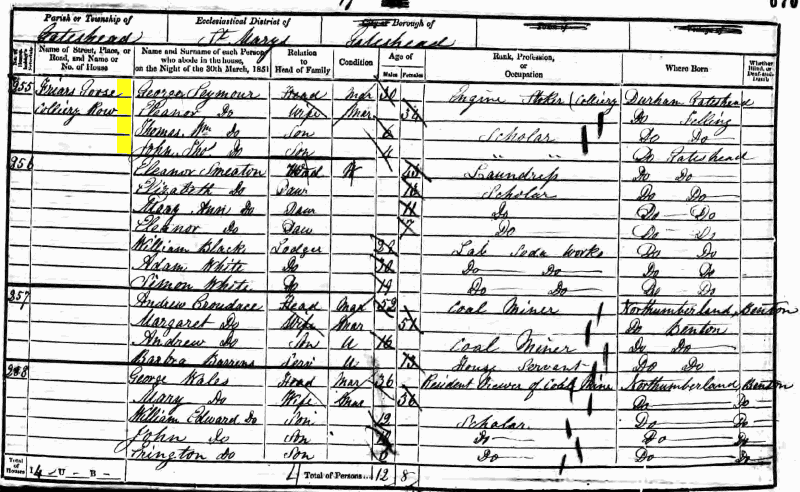 Parish or Township of Gateshead Ecclesiastical District of St Marys City or Borough of Gateshead Town of Village of
Name of Street, Place, or Road, and Name or No. of House Name and Surname of each Person who abode in the house, on the Night of the 30th March, 1851 Relation to Head of Family Condition Age of Males Females Rank, Profession, or Occupation Where Born Whether Blind, or Deaf-and-Dumb
255 Friars Goose George Seymour Head Mar 30 Engine Stoker (Colliery Durham Gateshead
Colliery Row Eleanor Do Wife Mar Do Felling
Thomas Wm Do Son 6 Scholar Do Do
John Thos Do Son 4 " " Do Gateshead
256 Eleanor Smeaton Head W Laundress Do Do
Elizabeth Do Daur Scholar Do Do
Mary Ann Do Daur 11 Do Do Do
Eleanor Do Daur 7 Do Do Do
William Black Lodger Lab Soda Works Do Do
Adam White Do 30 Do Do Do Do
Simon White Do 19 Do Do Do Do
257 Andrew Head Mar 52 Coal Miner Northumberland, Benton
Margaret Do Wife Mar 51 Do Benton
Andrew Do Son U 16 Coal Miner Do Do
Barbra Servt U 13 House Servant Do Do
258 George Wales Head Mar 36 Resident Viewer of Coal Mine Northumberland Benton
Mary Do Wife Mar Do Do
William Edward Do Son 12 Scholar Do Do
John Do Son Do Do Do
Do Son Do Do Do
Total of Houses 14 U B Total of Persons... 12 8